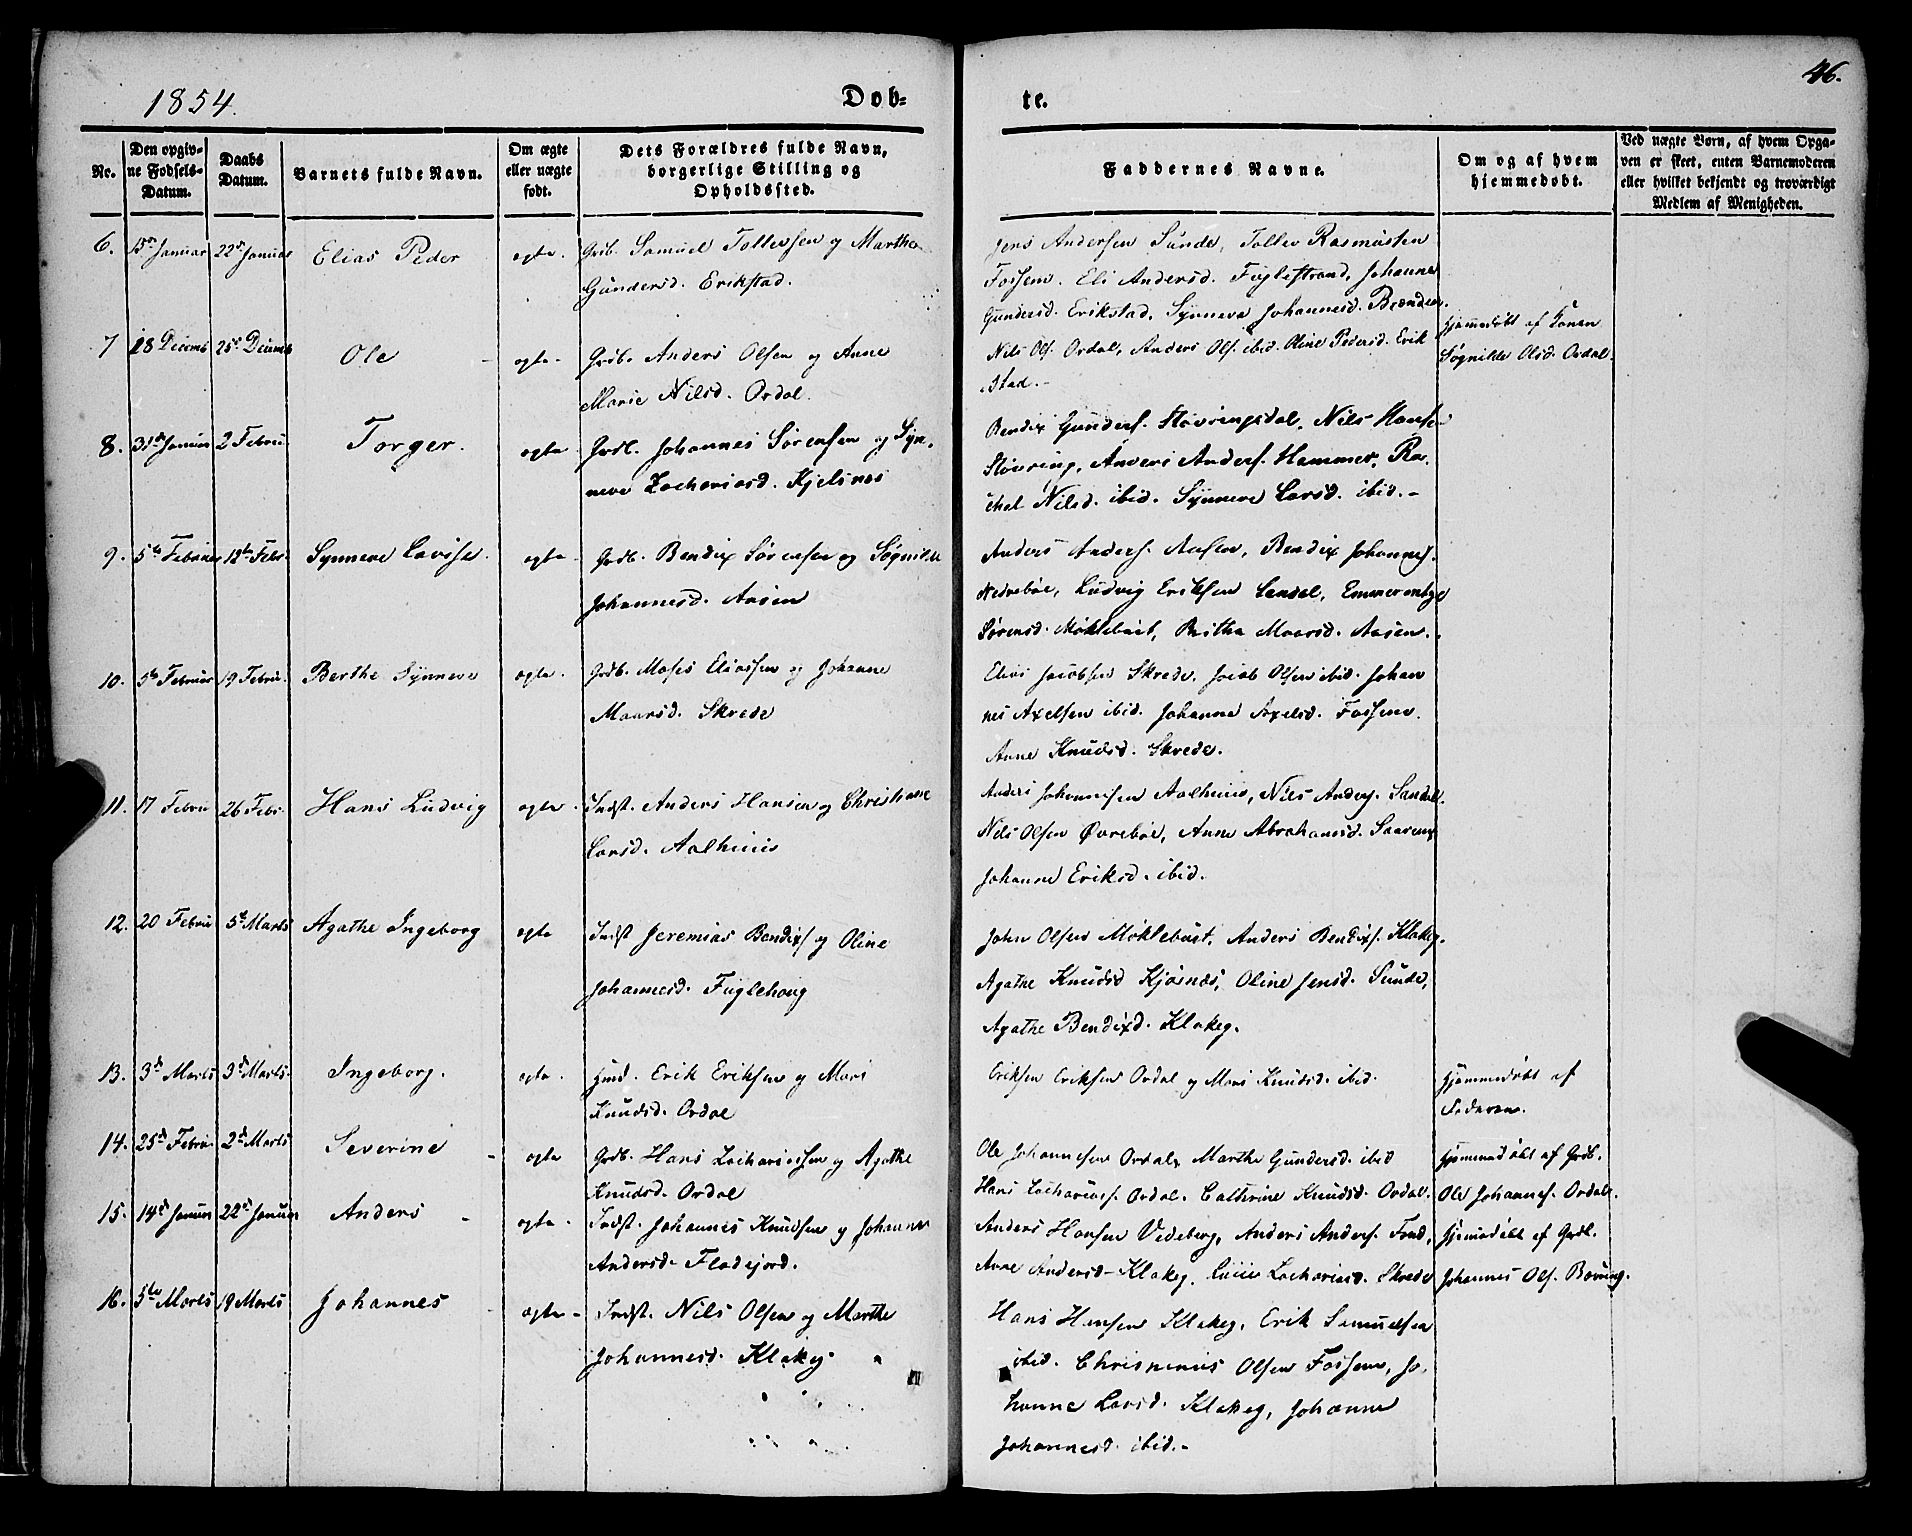 1854.
Døb-
te.
46.
No.
Den opgiv-
ne Fødsels-
Datum.
Daabs
Datum.
Barnets fulde Navn.
Om ægte
eller uægte
født.
Dets Forældres fulde Navn,
borgerlige Stilling og
Opholdssted.
Faddernes Navne.
Om og af hvem
hjemmedøbt.
Ved uægte Børn, af hvem Opga-
ven er skeet, enten Barnemoderen
eller hvilket bekjendt og troværdigt
Medlem af Menigheden.
6. 15de Januar 22de Januar Elias Peder ægte. Grdb. Samuel Tollevsen og Marthe
Gundersd. Erikstad.
Jens Andersen Sunde, Tollev Rasmussen
Fossem. Eli Andersd. Fuglestrand, Johanne
Gundersd. Erikstad, Synneve Johannesd. Brænden.
7 18 Decemb 25de Decemb Ole - ægte. Grdb. Anders Olsen og Anne
Marie Nilsd. Ordal.
Nils Ols. Ordal, Anders Ols. ibid. Oline Pedersd. Erik
stad. -
Hjemmedøbt af Konen
Søgnilde Olsd. Ordal.
8. 31te Januar 2 Februar Torger. ægte Grdb. Johannes Sørensen og Syn-
neve Zachariasd. Kjelsnæs
Bendix Gunders. Støvringsdal, Nils Hans.
Støvring, Anders Anders. Hammer, Ra-
chel Nilsd. ibid. Synneve Larsd. ibid. -
9. 5te Februar 12te Febr. Synneve Lavise. ægte Grdb. Bendix Sørensen og Søgnilde
Johannesd. Aasen
Anders Anders. Aasen, Bendix Johannes.
Nedrebøe, Ludvig Eriksen Sandal, Emmerentze
Sørensd. Møklebust, Brithe Maarsd. Aasen.
10. 5te Februar 19 Februar Berthe Synneve ægte. Grdb. Moses Eliassen og Johanne
Maarsd. Skrede
Elias Jacobsen Skrede. Jacob Olsen ibid. Johan
nes Axelsen ibid. Johanne Axelsd. Fossem.
Anne Knudsd. Skrede.
11. 17 Febru 26 Febr. Hans Ludvig ægte Indst. Anders Hansen og Christiane
Larsd. Aalhuus
Anders Johannesen Aalhuus, Nils Anders. Sandal.
Nils Olsen Øvrebøe, Anne Abrahamsd.
Johanne Eriksd. ibid.
12. 20 Febru 5te Marts Agathe Ingeborg ægte Indst Jeremias Bendixs og Oline
Johannesd. Fuglehoug
John Olsen Møklebust, Anders Bendixs. Klakeg.
Agathe Knudsd Kjøsnæs, Oline Jensd. Sunde,
Agathe Bendixd. Klakeg.
13. 3de Marts 3de Marts. Ingeborg. ægte. Hmd. Erik Eriksen og Mari
Knudsd. Ordal
Eriksen Eriksen Ordal og Mari Knudsd. ibid.
Hjemmedøbt af
Faderen.
14. 25de Febru. 2de Marts Severine - ægte Grdb. Hans Zachariassen og Agathe
Knudsd. Ordal
Ole Johannesen Ordal, Marthe Gundersd. ibid
Hans Zacharias. Ordal. Cathrine Knudsd. Ordal.
Hjemmedøbt af Grdb.
Ole Johannes. Ordal.
15. 14de Januar 22de Januar Anders - ægte. Indst. Johannes Knudsen og Johanne
Andersd. Fladejord.
Anders Hansen Vedeberg, Anders Anders. Fond,
Anne Andersd. Klakeg. Zachariasd. Skrede
Hjemmedøbt af Grdb.
Johannes Ols. Børing.
16. 5te Marts 19 Marts Johannes - ægte - Indst. Nils Olsen og Marthe
Johannesd. Klakeg
Hans Hansen Klakeg. Erik Samuelsen
ibid. Olsen Fossem, Jo-
hanne Larsd. Klakeg, Johanne
Johannesd. ibid. -